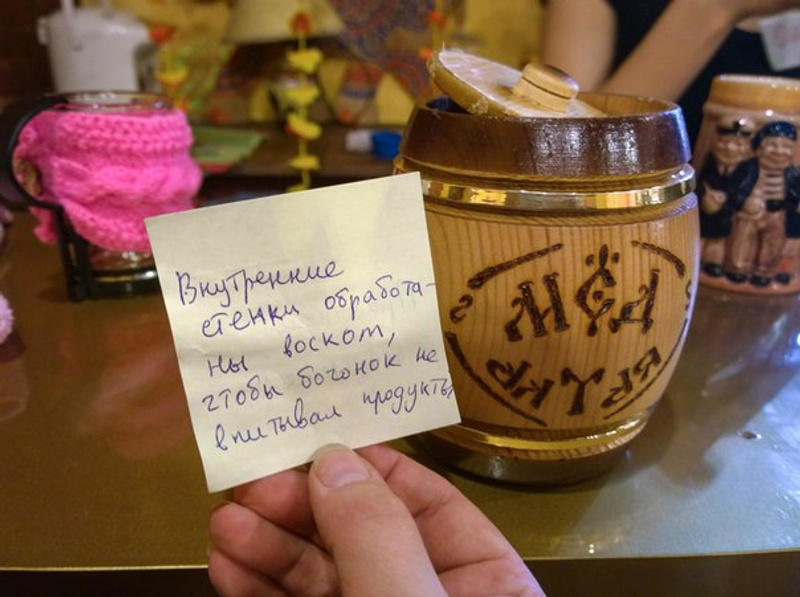 Внутренние
стенки обработа-
ны воском,
чтобы бочонок не
впитывал продукты
МЁД